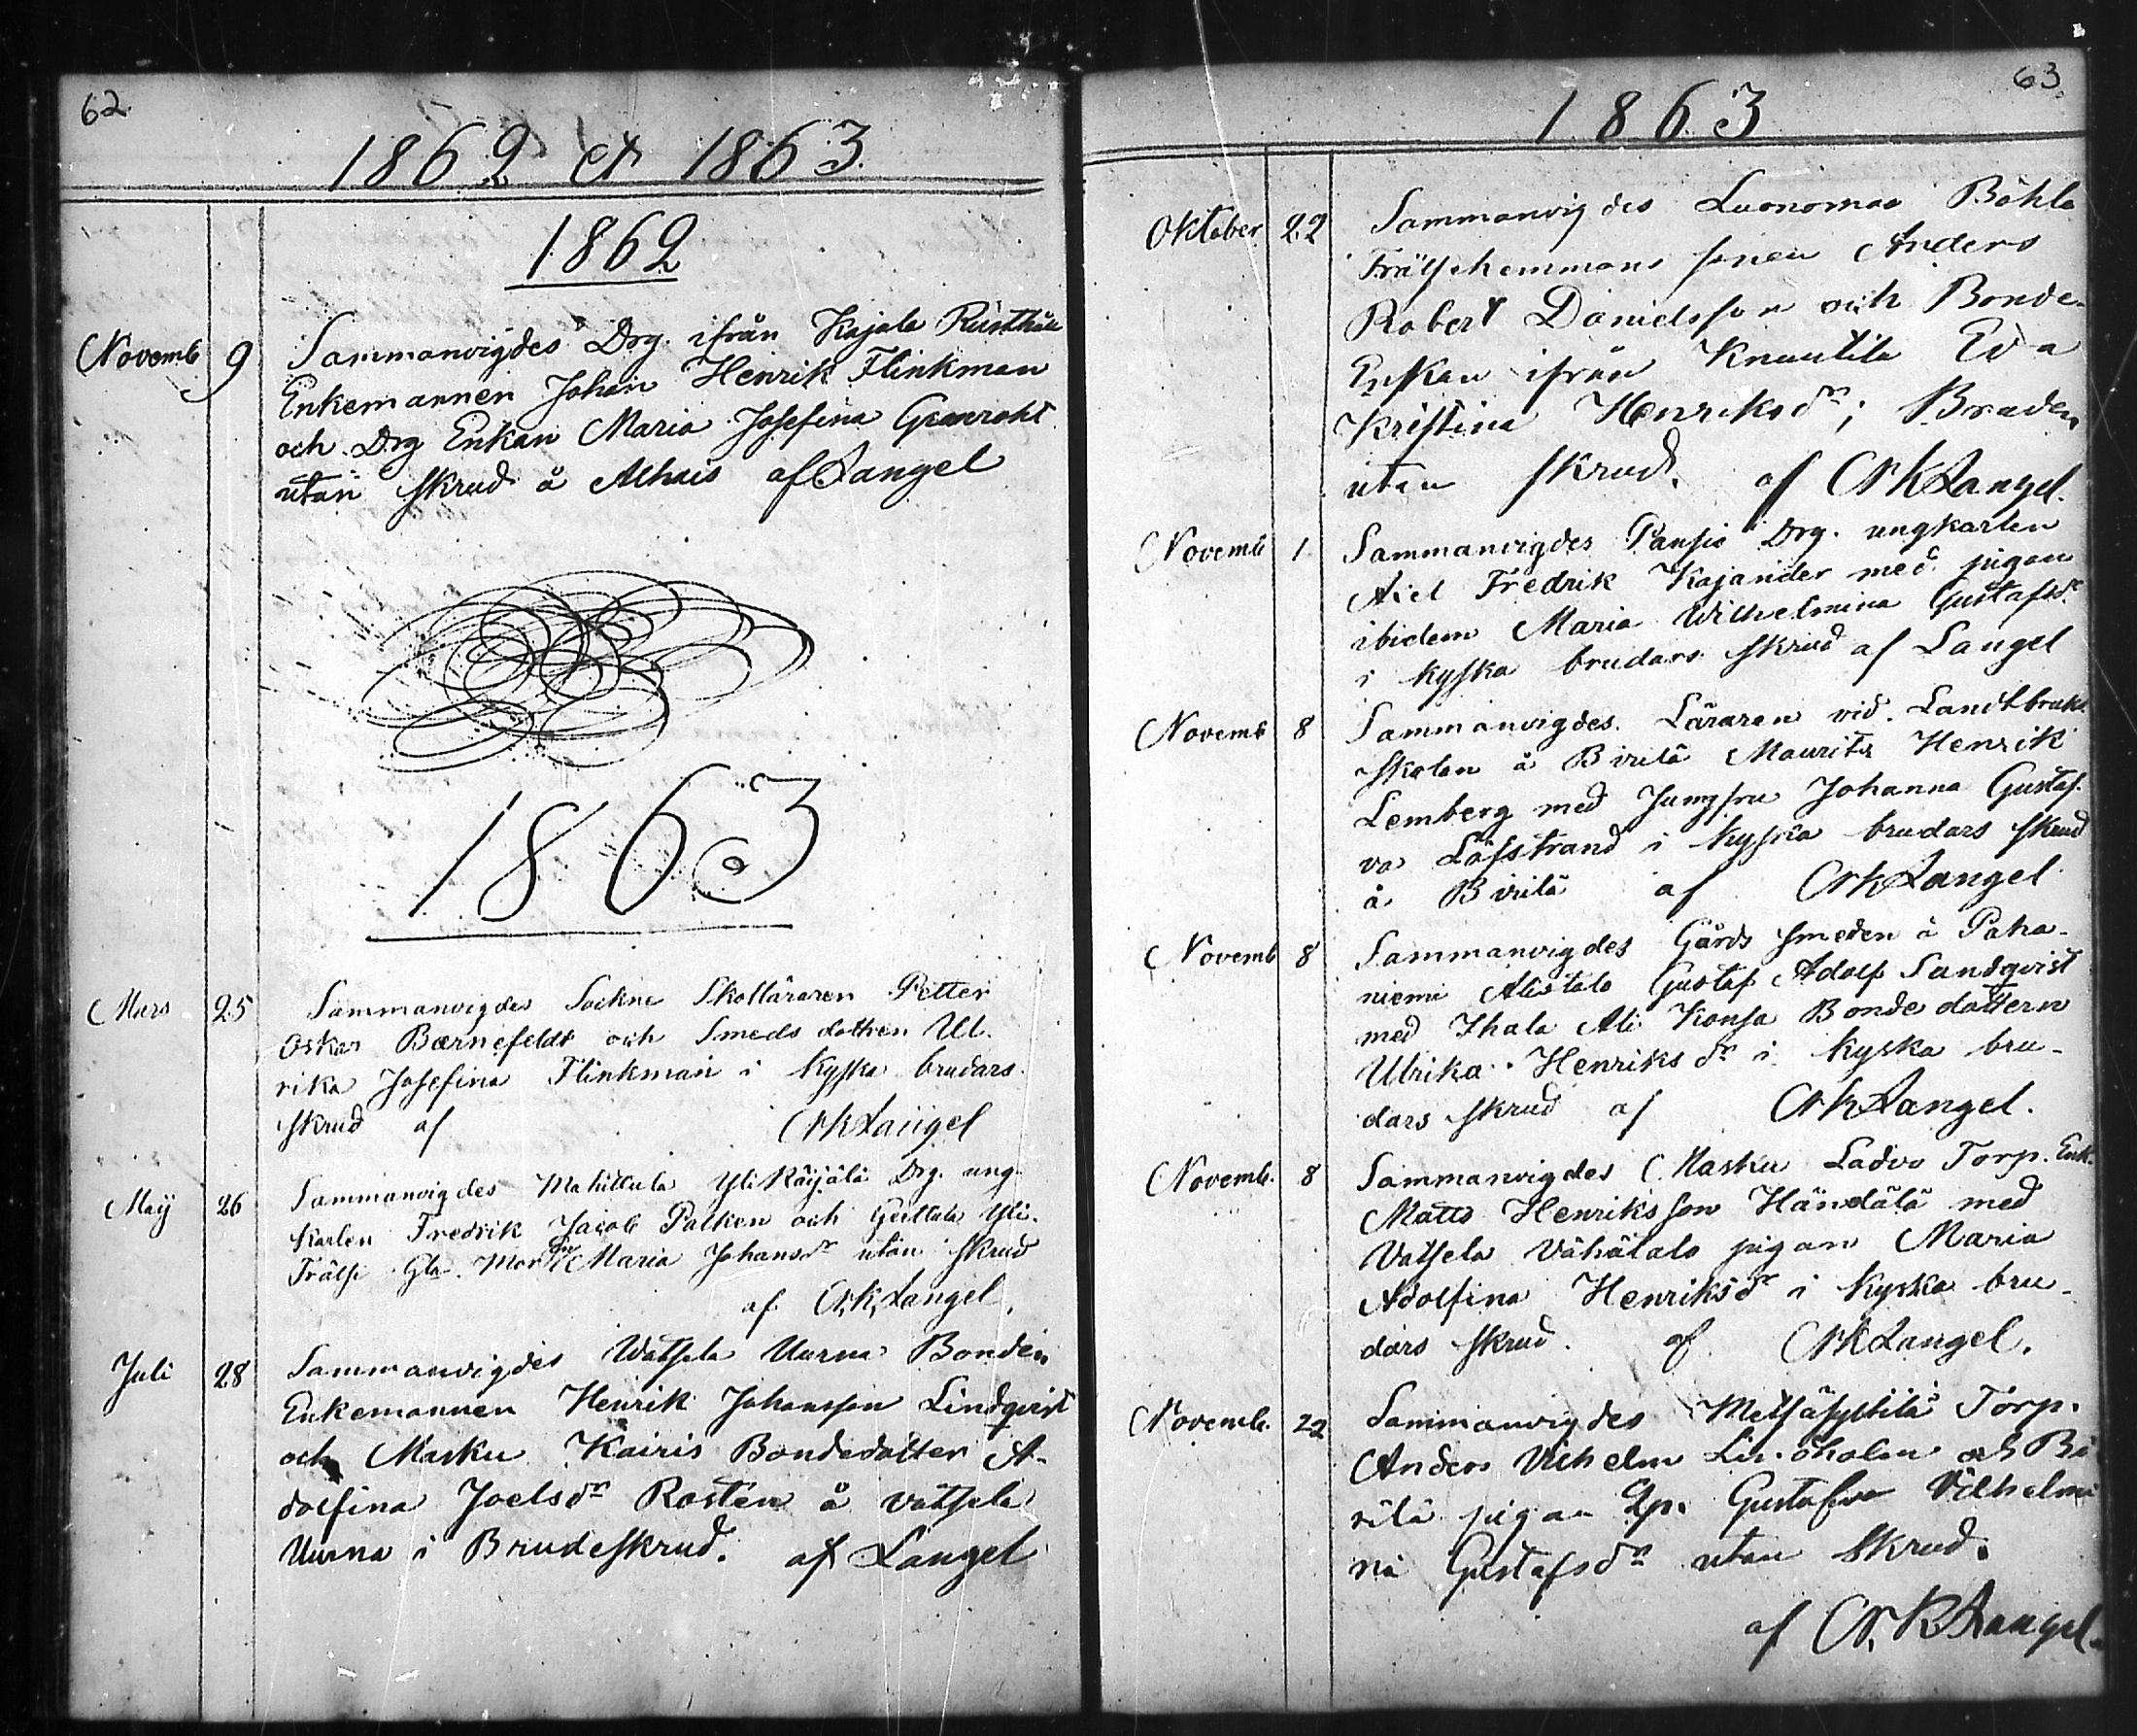 62.
1862 et 1863.
1862
Novemb 9 Sammanvigdes Drg. ifrån Kajala Rusthåll
Enkemannen Johan Henrik Flinkman
och Drg Enkan Maria Josefina Granroht
utan skrud å Alhais af Langel
1863
Mars 25 Sammanvigdes Sockne Skolläraren Petter
Oskar Bærnefeldt och Smeds dottren Ul-
rika Josefina Flinkman i kyska brudars
skrud af CrkLangel
Maij 26 Sammanvigdes Mahittula Yli Käijälä Drg. ung-
karlen Fredrik Jacob Palken och Gerttula Yli-
Frälse Gla. Maria Johansdr utan skrud
af C.r.k. Langel.
Juli 28 Sammanvigdes Watsela Uurna Bonden
Enkemannen Henrik Johansson Lindqvist
och Masku Kairis Bondedotter A-
dolfina Joelsdr Rosten å vatsela
Uurna i Brudeskrud. af Langel
63.
1863
Oktober 22 Sammanvigdes Luonomaa Böhle
Frälsehemmans sonen Anders
Robert Danielsson och Bonde-
Enkan ifrån Knuutila Eva
Kristina Henriksdr; Bruden
utan skrud. af CrkLangel.
Novemb 1 Sammanvigdes Pansio Drg. ungkarlen
Axel Fredrik Kajander med pigan
ibidem Maria Wilhelmina Gustafsdr
i kyska brudars skrud af Langel
Novemb 8 Sammanvigdes Läraren vid Landtbruks
skolan å Bviilä Maurits Henrik
Lemberg med Jungfru Johanna Gustaf-
va Löfstrand i kyska brudars skrud
å Bviilä af CrkLangel
Novemb 8 Sammanvigdes Gårds smeden å Paha-
niemi Alistalo Gustaf Adolf Sandqvist
med Ihala Ali Konsa Bonde dottern
Ulrika Henriksdr i kyska bru-
dars skrud af CrkLangel.
Novemb. 8 Sammanvigdes Masku Ladvo Torp. Enk.
Matts Henriksson Händälä med
Vatsela Vähätalo pigan Maria
Adolfina Henriksdr i kyska bru-
dars skrud. af CrkLangel.
Novemb. 22 Sammanvigdes Metsäsyltilä Torp.
Anders Vilhelm Lindholm och Bi
rilä pigan Gustafva Vilhelmi
na Gustafsdr utan skrud.
af C.r.k Langel.